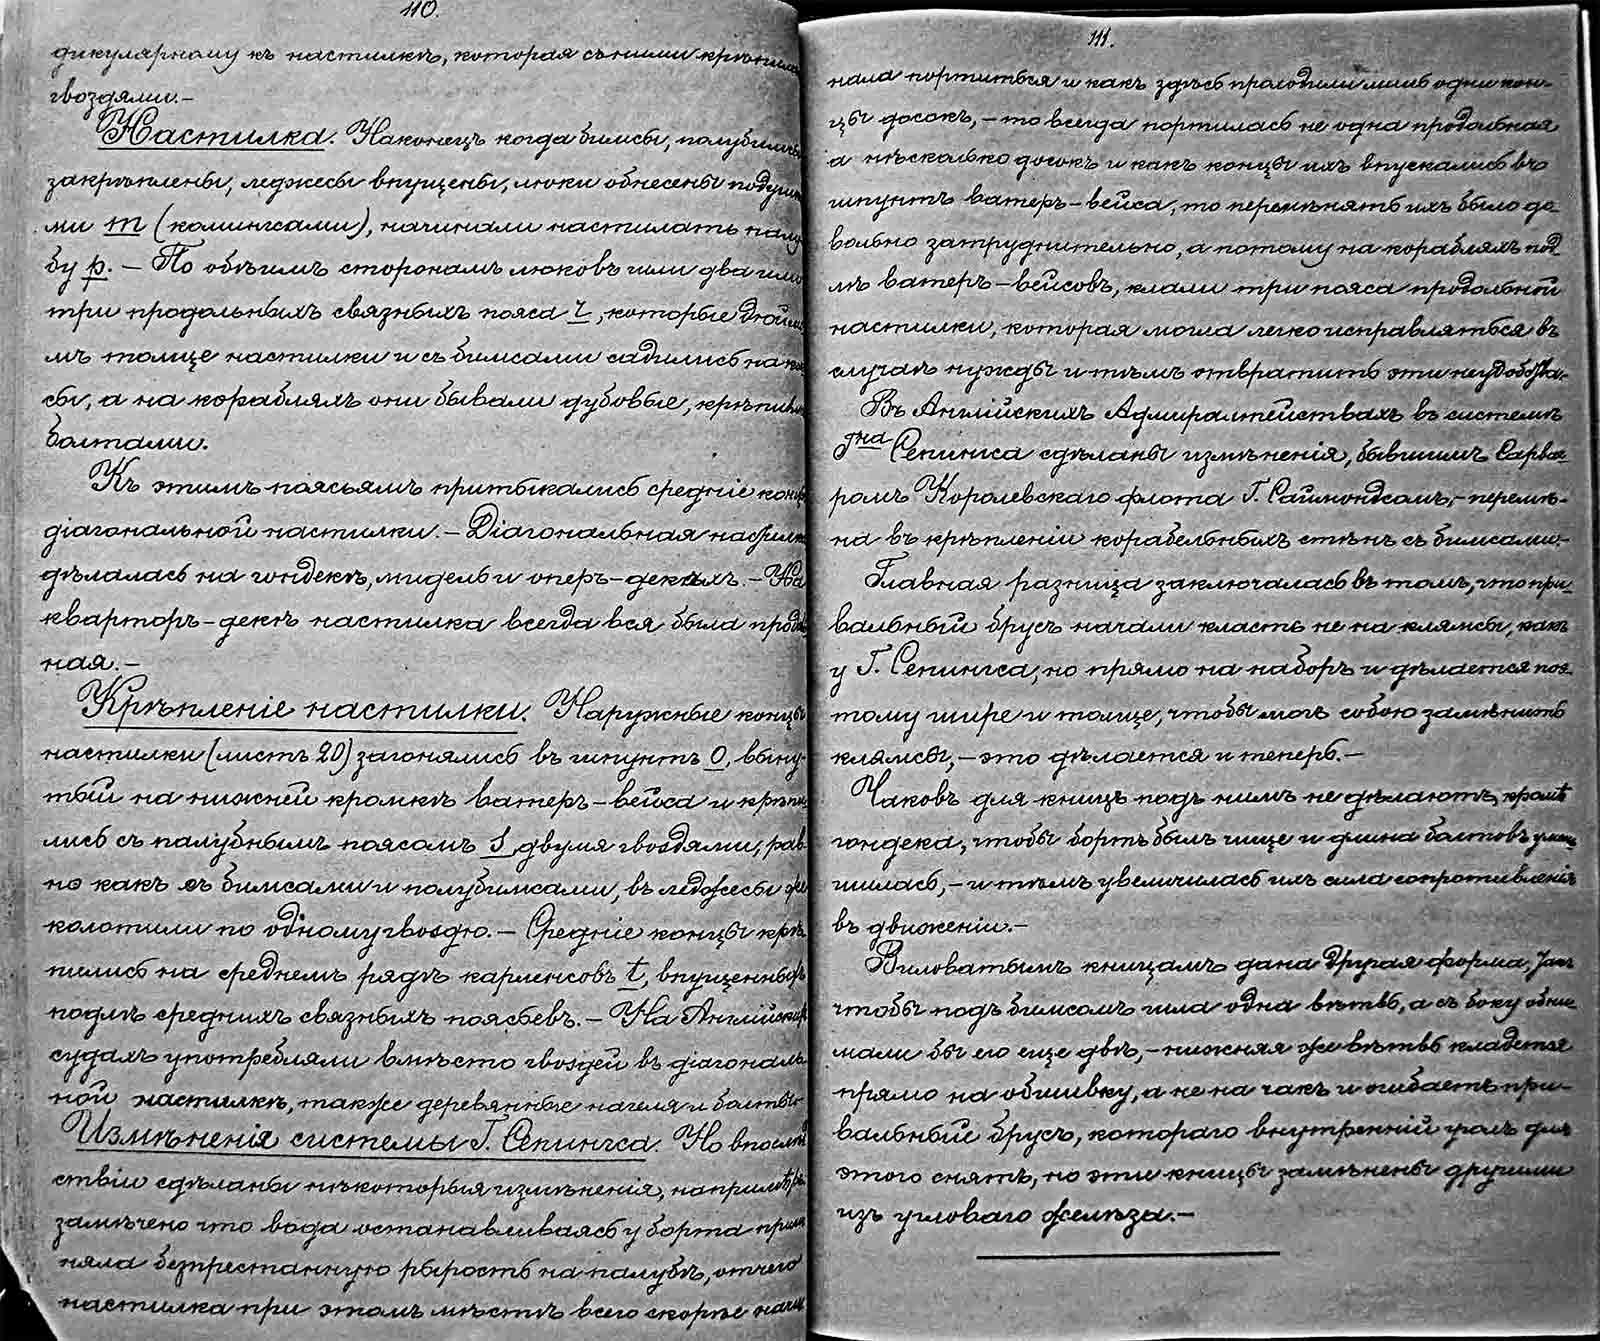 110.
дикулярному къ настилкѣ, которая съ ними крѣпилась
гвоздями.–
Настилка. Наконецъ когда бимсы, полубимсы
закрѣплены, леджесы впущены, люки обнесены подушка
ми m (комингсами), начинали настилать палу
бу p. – По обѣимъ сторонамъ люковъ шли два или
три продольныхъ связныхъ пояса r, которые дюймо
мъ толще настилки и съ бимсами садились на
сы, а на корабляхъ они бывали дубовые, крѣпились
болтами.
Къ этимъ поясьямъ притыкались средніе концы
діагональной настилки. – Діагональная настилка
дѣлалась на гондекѣ, мидель и оперъ-декахъ. – На
квартеръ-декѣ настилка всегда вся была продоль
ная. –
Крѣпленіе настилки. Наружные концы
настилки (листъ 20) загонялись въ шпунтъ O, выну-
тый на нижней кромкѣ ватеръ-вейса и крѣпи
лись съ палубнымъ поясомъ S двумя гвоздями, рав
но какъ съ бимсами и полубимсами, въ леджесы же
колотили по одному гвоздю. – Средніе концы крѣ
пились на среднемъ рядѣ карленсовъ t, впущенныхъ
подлѣ среднихъ связныхъ поясьевъ. – На Англійскихъ
судахъ употребляли вмѣсто гвоздей въ діагональ
ной настилкѣ, также деревянные нагеля и болты.
Измѣненія системы Г. Сепингса. Но впослѣд
ствіи сдѣланы нѣкоторыя измѣненія, напримѣръ
замѣчено что вода останавливаясь у борта причи
няла безпрестанную сырость на палубѣ, отчего
настилка при этомъ мѣстѣ всего скорѣе начи
111.
нала портиться и какъ здѣсь проходили лишь одни кон-
цы досокъ, – то всегда портилась не одна продольная
а нѣсколько досокъ и какъ концы ихъ впускались въ
шпунтъ ватеръ-вейса, то перемѣнять ихъ было до
вольно затруднительно, а потому на корабляхъ под
лѣ ватеръ-вейсовъ, клали три пояса продольной
настилки, которая могла легко исправляться въ
случаѣ нужды и тѣмъ отвратить эти неудобства.
Въ Англійскихъ Адмиралтействахъ въ системѣ
Гна Сепингса сдѣланы измѣненія, бывшимъ Сарвае-
ромъ Королевскаго флота Г. Саймондсомъ, – перемѣ-
на въ крѣпленіи корабельныхъ стѣнъ съ бимсами.–
Главная разница заключалась въ томъ, что при-
вальный брусъ начали класть не на клямсы, какъ
у Г. Сепингса, но прямо на наборъ и дѣлается поэ-
тому шире и толще, чтобы могъ собою замѣнить
клямсы, – это дѣлается и теперь. –
Чаковъ для кницъ подъ нимъ не дѣлаютъ, кромѣ
гондека, чтобы бортъ былъ чище и длина болтовъ умень
шилась, – и тѣмъ увеличилась ихъ сила сопротивленія
въ движеніи. –
Виловатымъ кницамъ дана другая форма,
чтобы подъ бимсомъ шла одна вѣтвь, а съ боку обни-
мали бы его еще двѣ, – нижняя же вѣтвь кладется
прямо на обшивку, а не на чакъ и огибаетъ при-
вальный брусъ, котораго внутренній уголъ для
этого снятъ, но эти кницы замѣнены другими
изъ угловаго желѣза. –